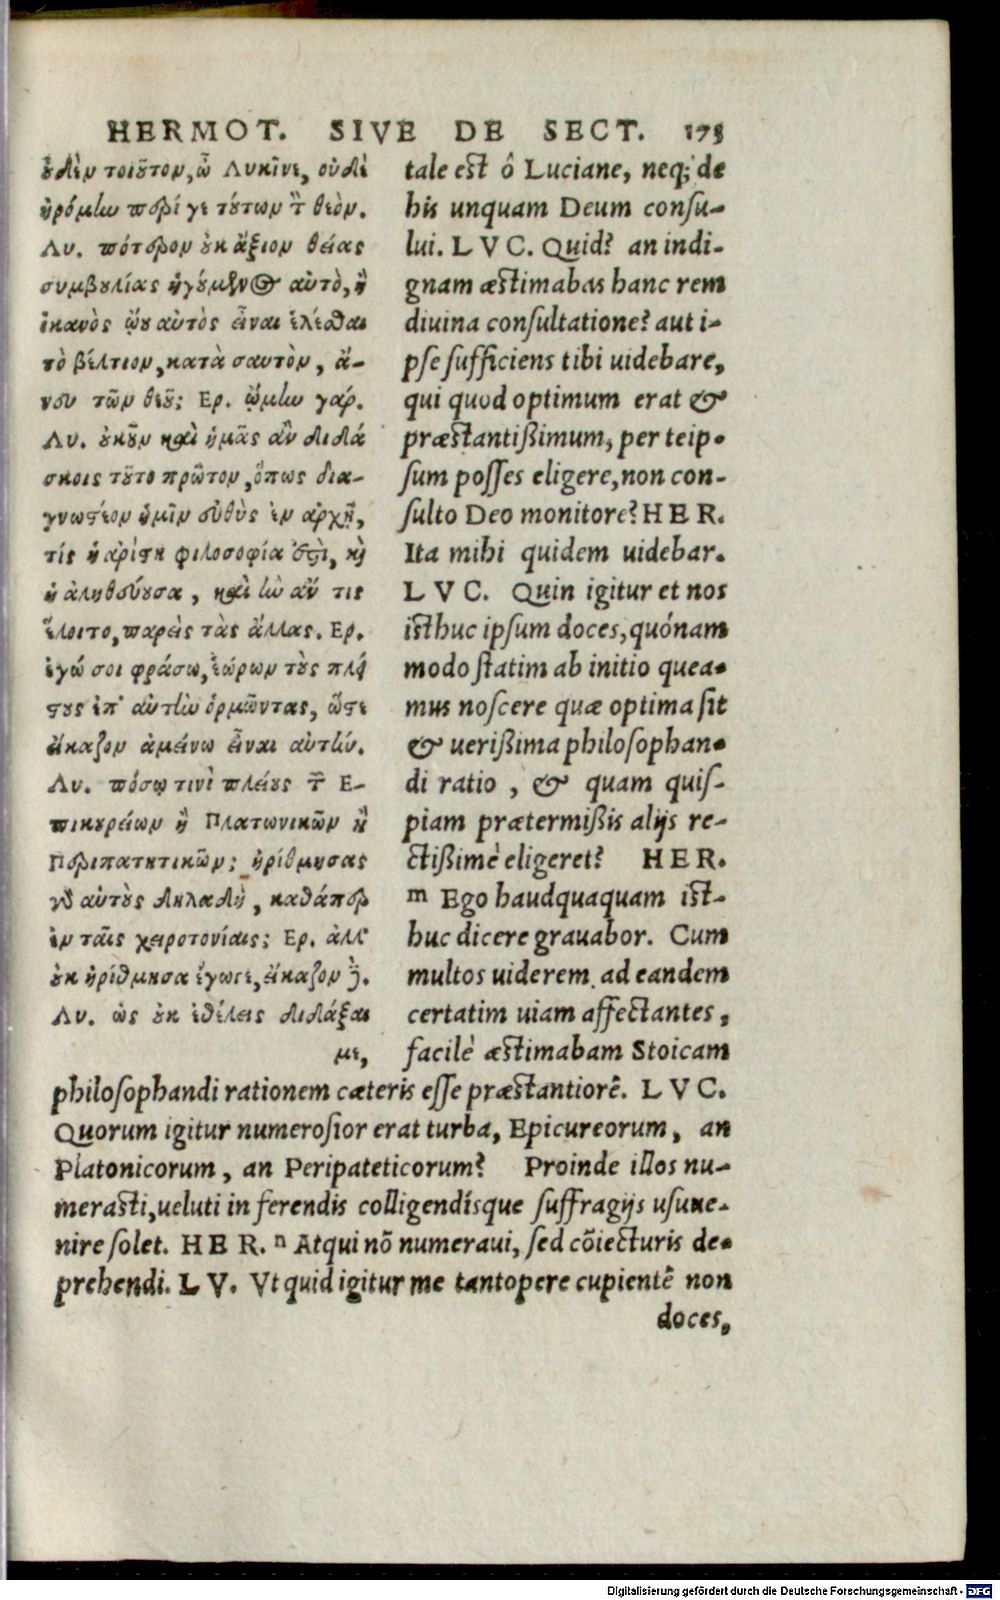 HERMOT. SIVE DE SECT. 175
ȣ̓δὲν τοιȣ͂τον, ὦ Λυκῖνε, οὐδὲ
ἠρόμlω περί γε τȣ́των τ̃ θεὸν.
Λυ. πότερον ȣ̓κ ἄξιον θείας
συμβȣλίας ἡγȣ́μενος αὐτὸ, ἢ
ἱκανὸς ᾤȣ αὐτὸς εἶναι ἑλέσθαι
τὸ βέλτιον, κατὰ σαυτὸν, ἄ-
νευ τῶν θεȣ͂; Ερ. ᾤμlω γάρ.
Λυ. ȣ̓κȣ͂ν καὶ ἡμᾶς ἂν διδά
σκοις τȣ͂το πρῶτον, ὅπως δια-
γνωστέον ἡμῖν εὐθὺς ἐν ἀρχῇ,
τίς ἡ ἀρίστη φιλοσοφία ἐστὶ, κὴ
ἡ ἀληθεύȣσα, καὶ lὼ ἄν τις
ἕλοιτο, παρεὶς τὰς ἄλλας. Ερ.
ἐγώ σοι φράσω, ἑώρων τȣ̀ς πλεί
στȣς ἐπ᾽ αὐτlὼ ὁρμῶντας, ὥστε
εἴκαζον ἀμείνω εἶναι αὐτlώ.
Λυ. πόσῳ τινὶ πλείȣς τ̃ Ε-
πικȣρείων ἢ Πλατωνικῶν ἢ
Περιπατητικῶν; ἠρίθμησας
γὸ αὐτȣ̀ς δηλαδὴ, καθάπερ
ἐν ταῖς χειροτονίαις; Ερ. ἀλλ᾽
ȣ̓κ ἠρίθμησα ἔγωγε, εἴκαζον δ̓.
Λυ. ὡς ȣ̓κ ἐθέλεις διδάξαι
με,
tale est ô Luciane, neq; de
his unquam Deum consu-
lui. L V C. Quid? an indi-
gnam æstimabas hanc rem
diuina consultatione? aut i-
pse sufficiens tibi uidebare,
qui quod optimum erat &
præstantißimum, per teip-
sum posses eligere, non con-
sulto Deo monitore? H E R.
Ita mihi quidem uidebar.
L V C. Quin igitur et nos
isthuc ipsum doces, quónam
modo statim ab initio quea-
mus noscere quæ optima sit
& uerißima philosophan-
di ratio, & quam quis-
piam prætermißis alijs re-
ctißimè eligeret? H E R.
m Ego haudquaquam ist-
huc dicere grauabor. Cum
multos uiderem ad eandem
certatim uiam affectantes,
facilè æstimabam Stoicam
philosophandi rationem cæteris esse præstantiorē. L V C.
Quorum igitur numerosior erat turba, Epicureorum, an
Platonicorum, an Peripateticorum? Proinde illos nu-
merasti, ueluti in ferendis colligendísque suffragijs usuue-
nire solet. H E R. n Atqui nō numeraui, sed cōiecturis de-
prehendi. L V. Vt quid igitur me tantopere cupientē non
doces,
Digitalisierung gefördert durch die Deutsche Forschungsgemeinschaft - DFG